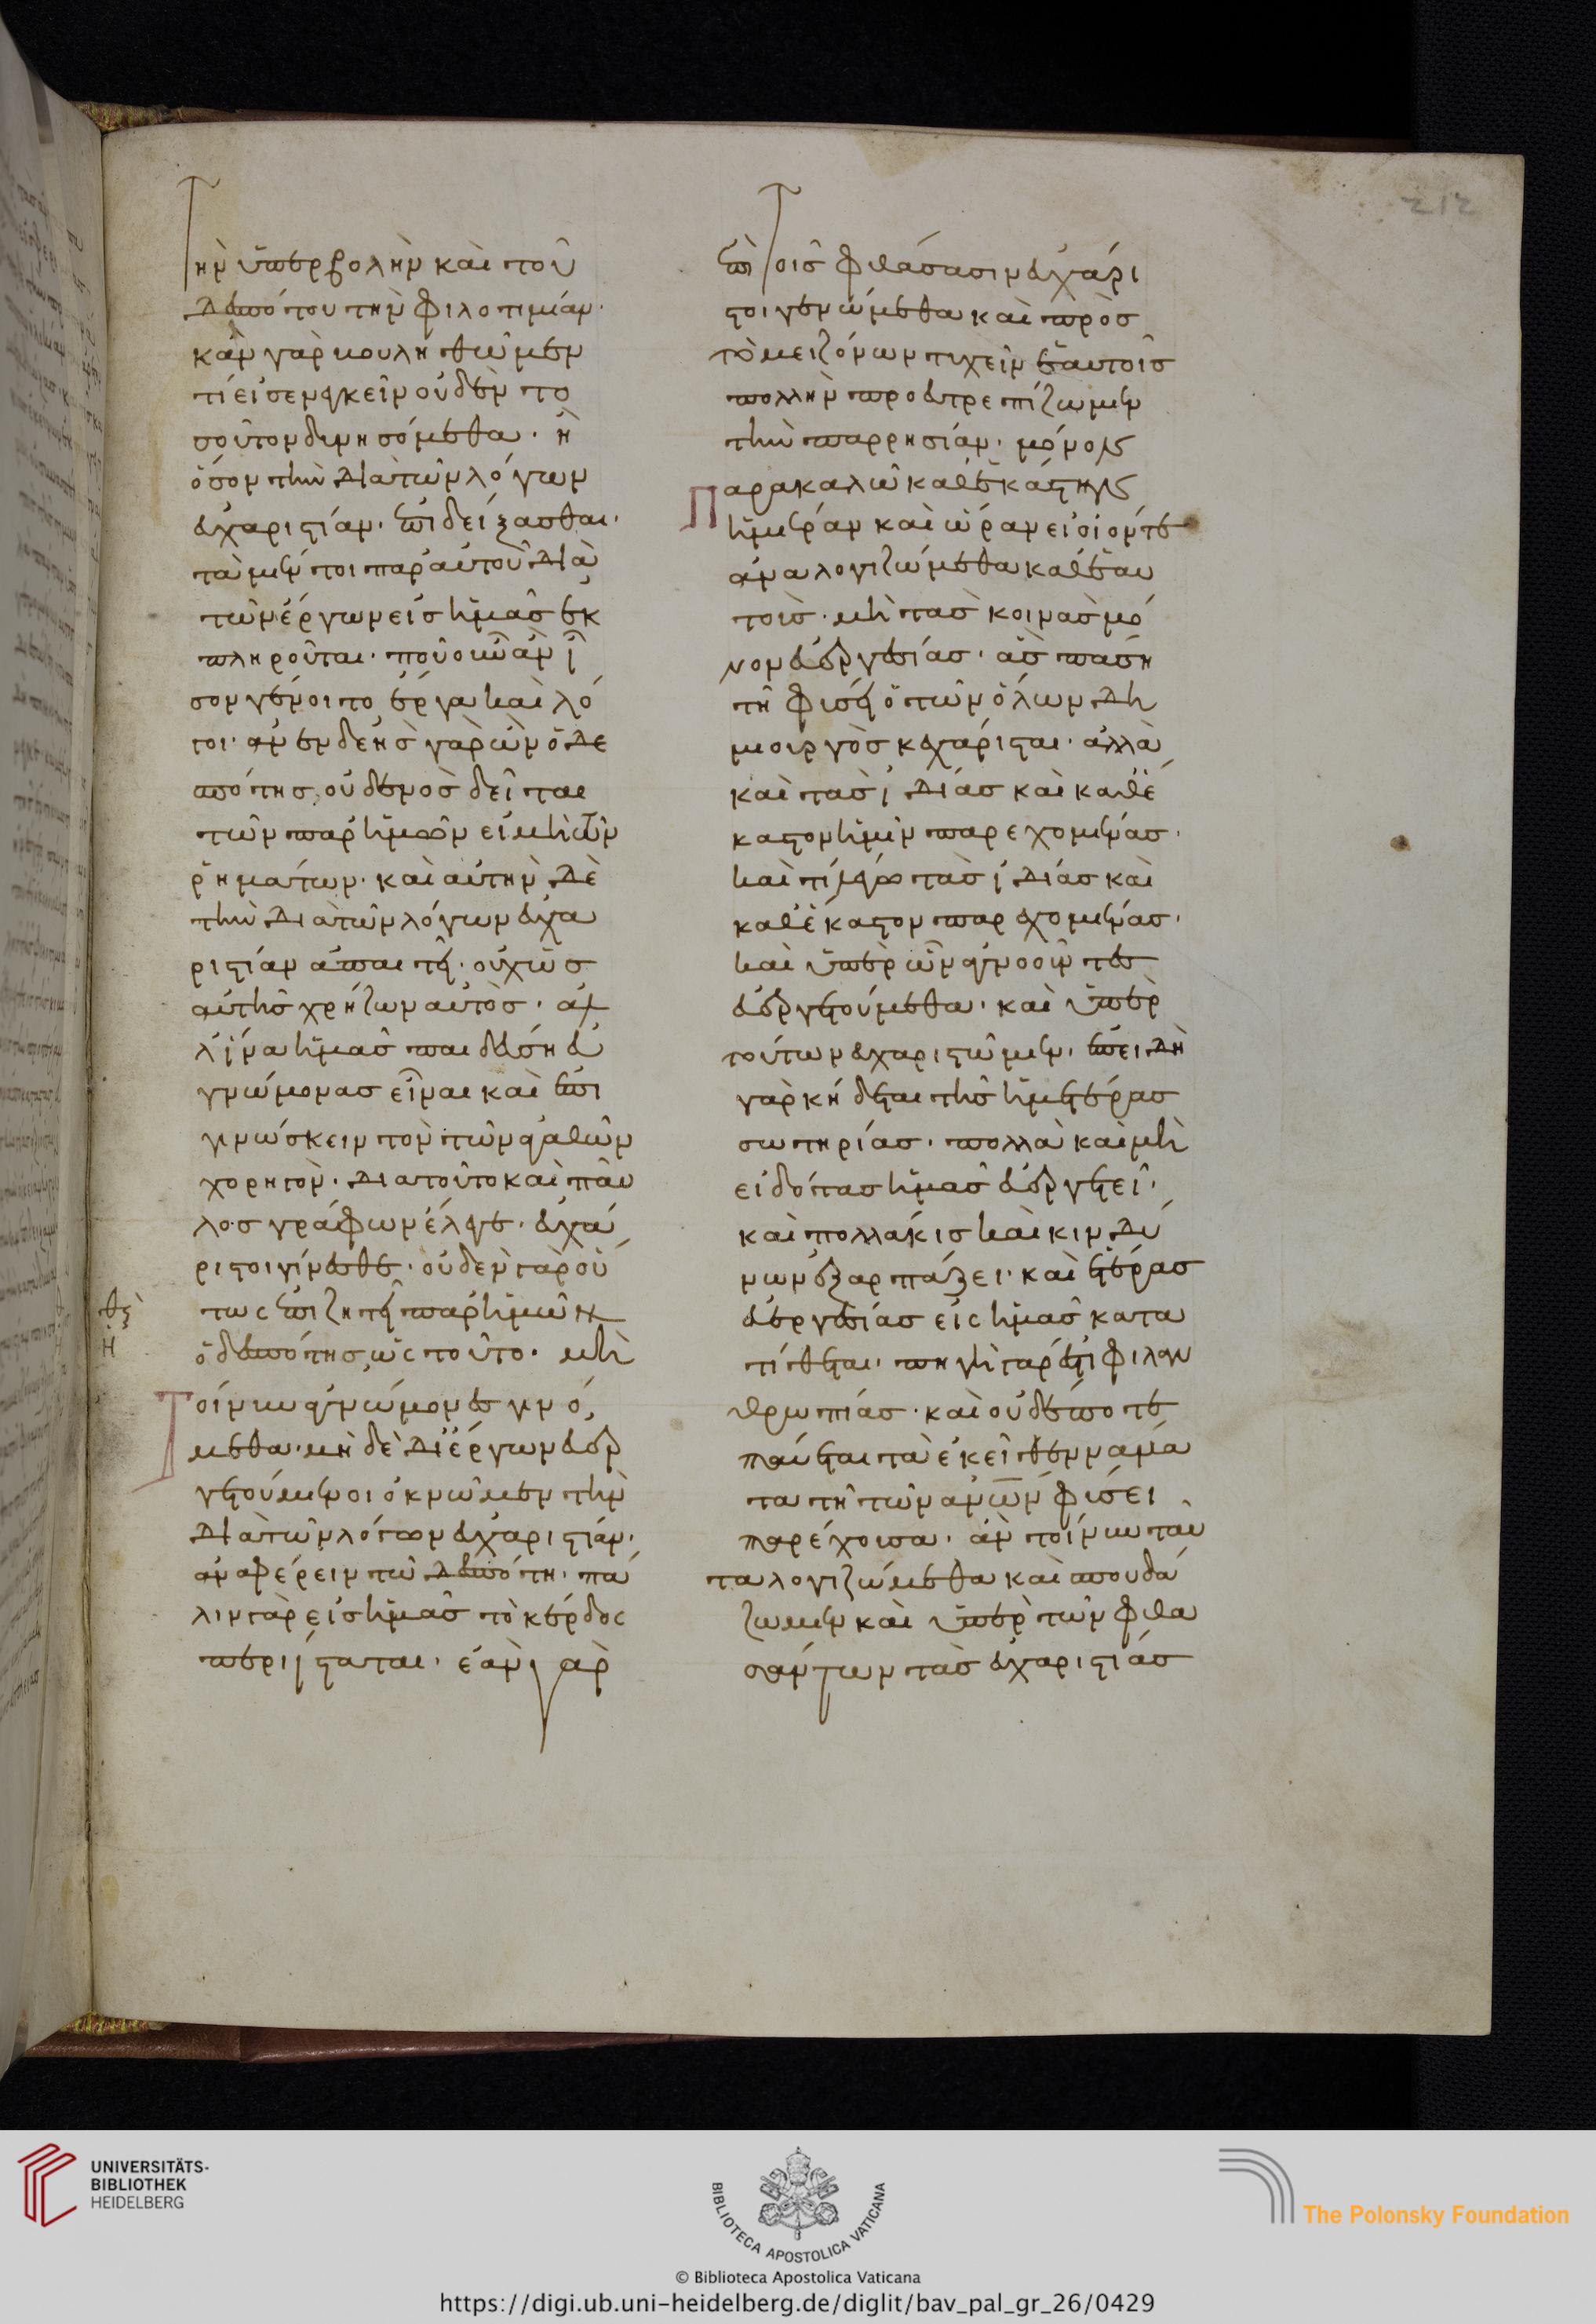 Τὴν ὑπερβολὴν καὶ τοῦ
δεσπότου τὴν φιλοτιμίαν·
κἂν γὰρ βουληθῶμέν
τι εἰσενεγκεῖν οὐδὲν το
σοῦτον δυνησόμεθα· ἢ
ὅσον τὴν διὰ τῶν λόγων
εὐχαριστίαν· ἐπιδείξασθαι·
τὰ μέν τοι παρ' αὐτοῦ διὰ
τῶν ἔργων εἰς ἡμᾶς ἐκ
πληροῦται· ποῦ οὖν ἂν ἴ
σον γένοιτο ἔργα καὶ λό
γοι· ἀνενδεὴς γὰρ ὢν ὁ δε
σπότης, οὐδενὸς δεῖται
τῶν παρ' ἡμῶν εἰ μὴ τῶν
ῥημάτων· καὶ αὐτὴν δὲ
τὴν διὰ τῶν λόγων εὐχα
ριστίαν ἀπαιτεῖ· οὐχ ὡς
αὐτῆς χρήζων αὐτὸς· ἀλ
λ' ἵνα ἡμᾶς παιδεύση εὐ
γνώμονας εἶναι καὶ ἐπι
γινώσκειν τὸν τῶν ἀγαθῶν
χορηγὸν· διατοῦτο καὶ παῦ
λος γράφων ἔλεγε· εὐχά
ριστοι γίνεσθε· οὐδὲν γὰρ οὕ
τως ἐπιζητεῖ παρ' ἡμῶν
ὁ δεσπότης, ὡς τοῦτο· μὴ
Τοίνυν ἀγνώμονες γινό
μεθα· μηδὲ δι' ἔργων εὐερ
γετούμενοι ὀκνῶμεν τὴν
διὰ τῶν λόγων εὐχαριστίαν·
ἀναφέρειν τῶ δεσπότη· πά
λιν γὰρ εἰς ἡμᾶς τὸ κέρδος
περιίσταται· ἐὰν γὰρ
ἐπὶ τοῖς φθάσασιν εὐχάρι
στοι γενώμεθα καὶ πρὸς
τὸ μειζόνων τυχεῖν ἑαυτοῖς
πολλὴν προευτρεπίζωμεν
τὴν παρρησίαν· μόνον
Παρακαλῶ καθ' ἑκάστην
ἡμέραν καὶ ὥραν εἰ οἷόν τε
ἀναλογιζώμεθα καθ' ἑαυ
τοὺς· μὴ τὰς κοινὰς μό
νον εὐεργεσίας· ἃς πάση
τῆ φύσει ὁ τῶν ὅλων δη
μιουργὸς κεχάρισται· ἀλλὰ
καὶ τὰς ἰδίας καὶ καθέ
καστον ἡμῖν παρεχομένας·
καὶ τί λέγω τὰς ἰδίας καὶ
καθέκαστον παρεχομένας·
καὶ ὑπὲρ ὧν ἀγνοοῦντες
εὐεργετούμεθα· καὶ ὑπὲρ
τούτων εὐχαριστῶμεν· ἐπειδὴ
γὰρ κήδεται τῆς ἡμετέρας
σωτηρίας· πολλὰ καὶ μὴ
εἰδότας ἡμᾶς εὐεργετεῖ·
καὶ πολλάκις καὶ κινδύ
νων ἐξαρπάζει· καὶ ἑτέρας
εὐεργεσίας εἰς ἡμᾶς κατα
τίθεται· πηγὴ γάρ ἐστι φιλαν
θρωπίας· καὶ οὐδέποτε
παύεται τὰ ἐκεῖθεν νάμα
τα τῆ τῶν ἀνων φύσει
παρέχουσα· ἂν τοίνυν ταῦ
τα λογιζώμεθα καὶ σπουδά
ζωμεν καὶ ὑπὲρ τῶν φθα
σάντων τὰς εὐχαριστίας
212
UNIVERSITÄTS-
BIBLIOTHEK
HEIDELBERG
BIBLIOTECA APOSTOLICA VATICANA
© Biblioteca Apostolica Vaticana
The Polonsky Foundation
https://digi.ub.uni-heidelberg.de/diglit/bav_pal_gr_26/0429